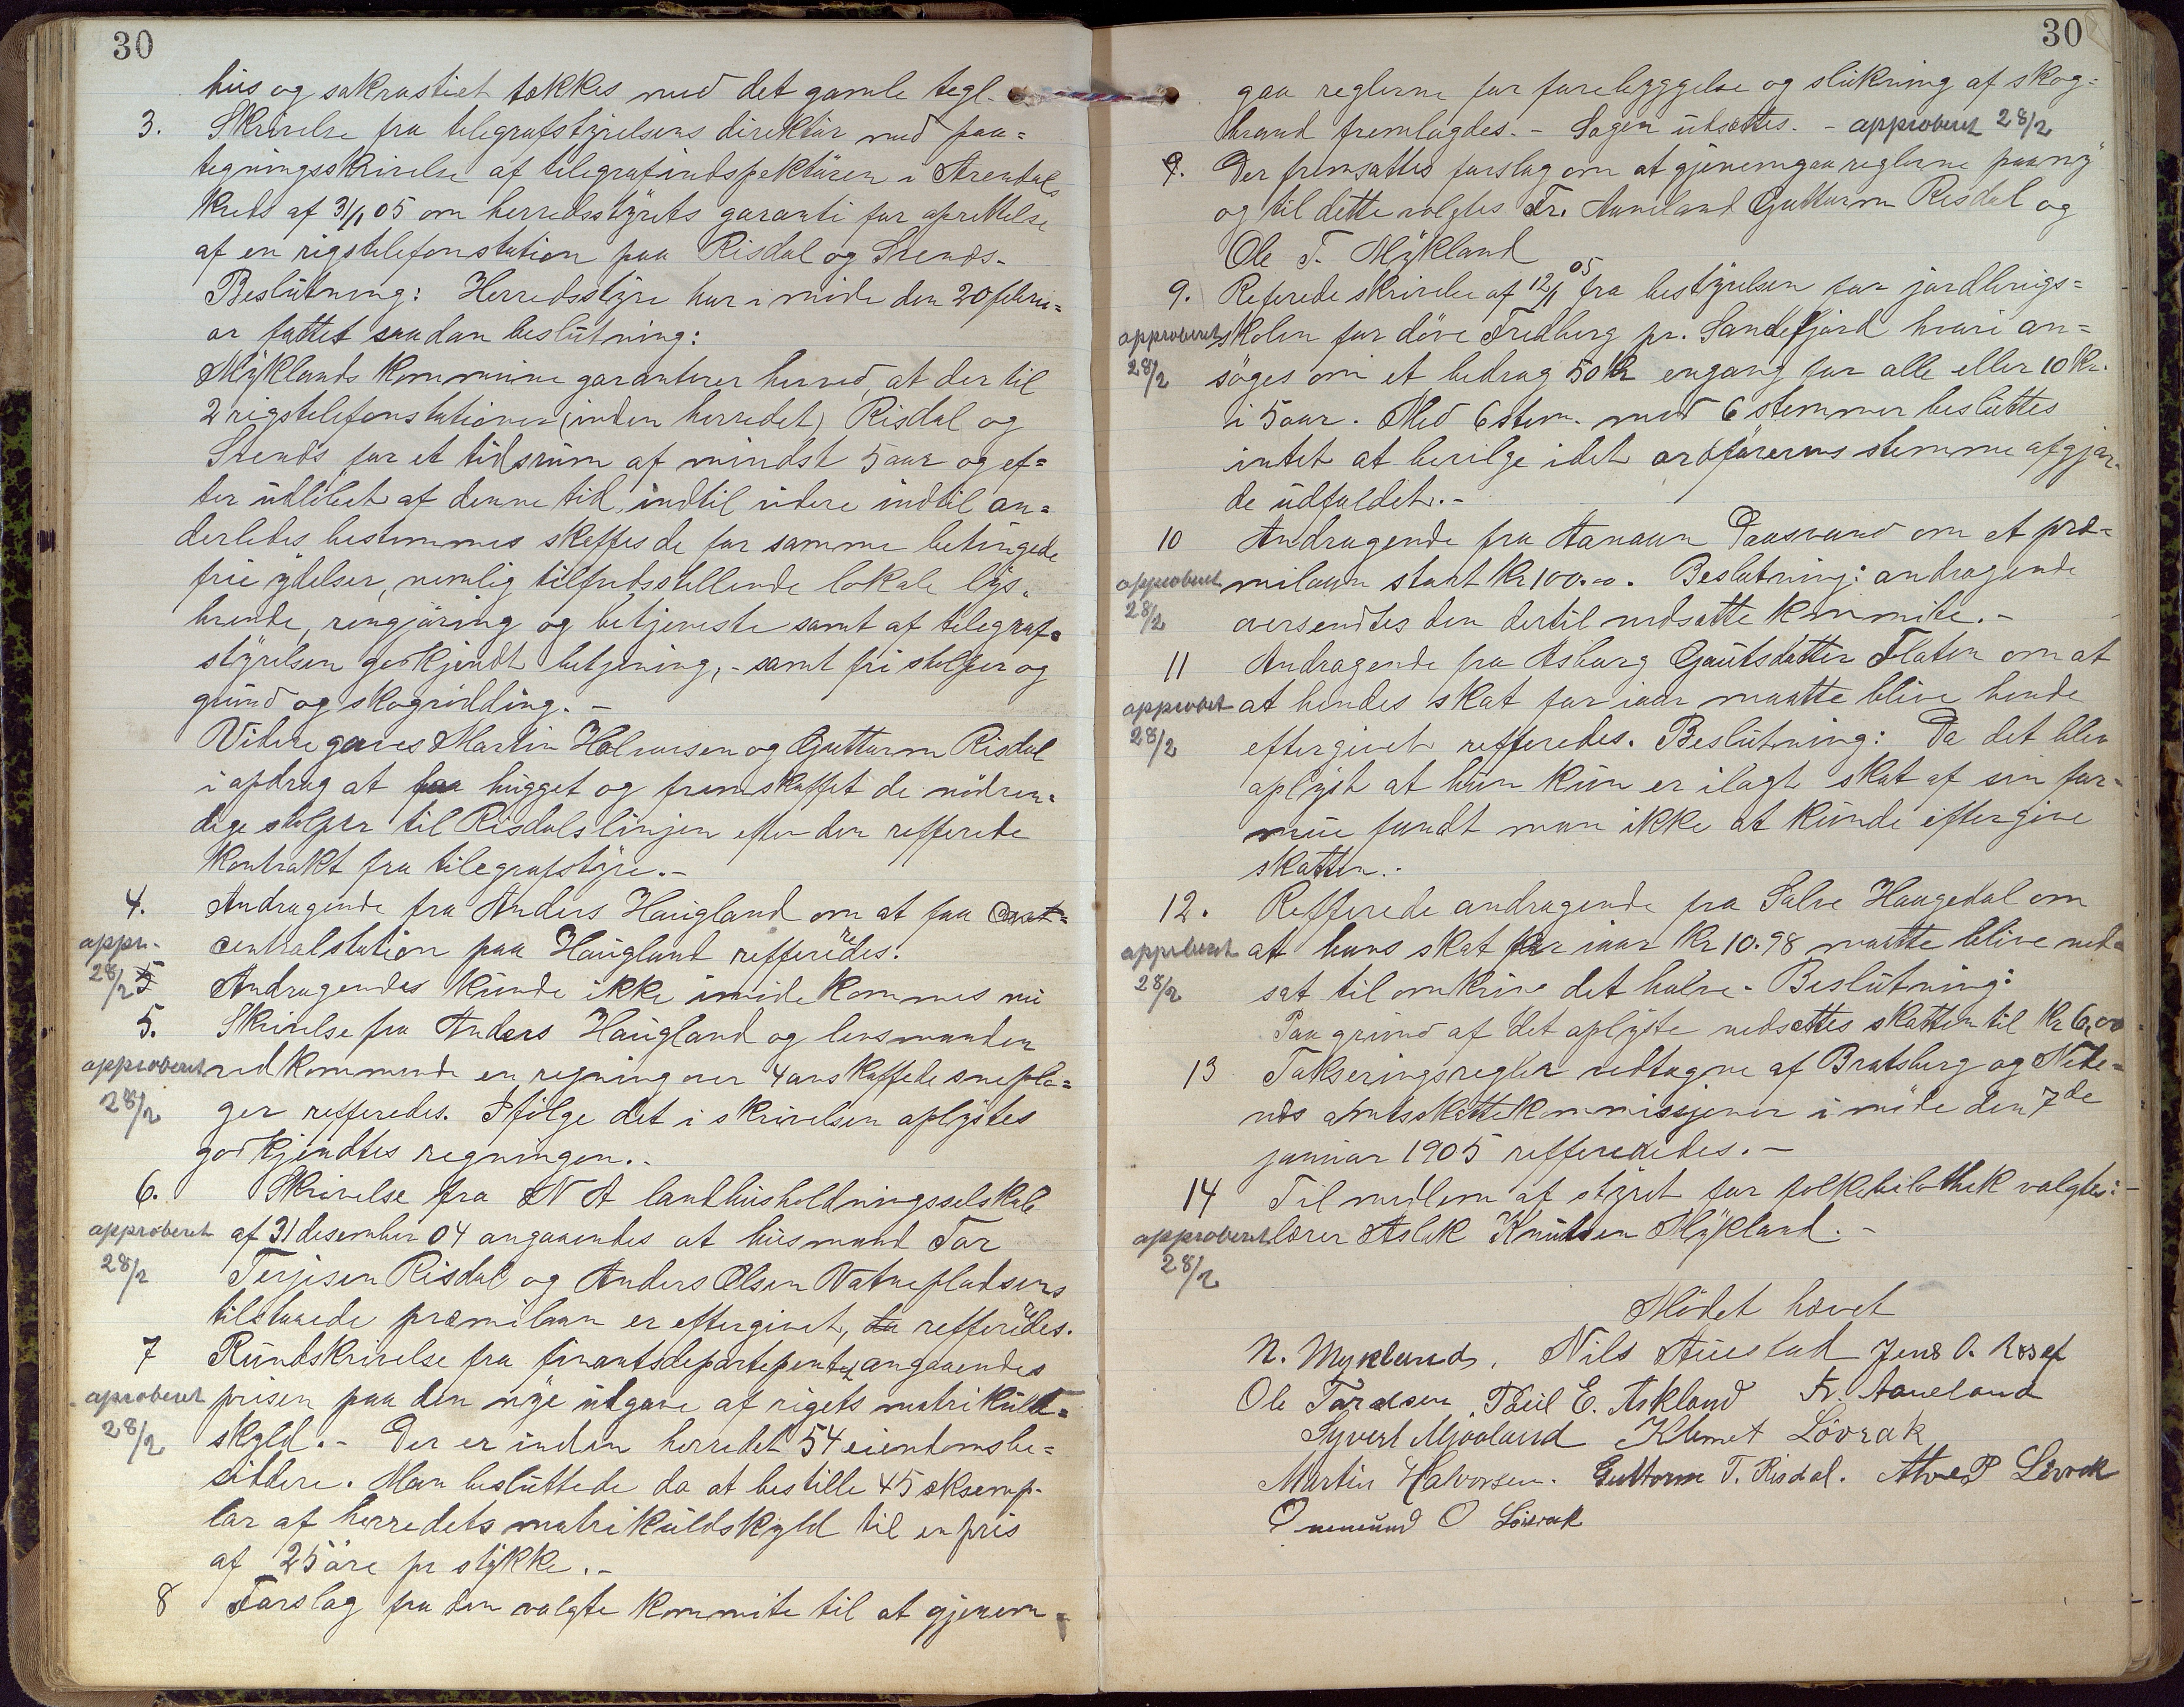 30
hus og sakrastiet tækkes med det gamle tegl.
3. Skrivelse fra telegrafstyrelsens direktür med paa=
tegningsskrivelse af telegrafindspektüren i Arendals
kreds af 31/1 05 om herredsstyrets garanti for oprettelse
af en rigstelefonstation paa Risdal og Svends.
Beslütning: Herredsstyre har i møde den 20 febru=
ar fattet saadan beslütning:
Myklands kommüne garanterer herved, at der til
2 rigstelefonstationer (inden herredet) Risdal og
Svends for et tidsrüm af mindst 5 aar og ef=
ter üdløbet af denne tid, indtil videre indtil an=
derledes bestemmes skeffes de for samme betingede
frie ydelser, nemlig tilfredsstillende lokale lys,
brende, rengjøring og betjeneste samt af telegraf=
styrelsen godkjendt betjening, - samt fri stolper og
gründ og skogrüdding. -
Videre gaves Martin Halvorsen og Guttorm Risdal
i opdrag at faa hügget og fremskaffet de nødven=
dige stolper til Risdalslinjen efter den refferede
kontrakt fra telegrafstyre. -
4. Andragende fra Anders Haügland om at faa
centralstation paa Haügland refferedes.
appr. 28/2
Andragendes künde ikke imøde kommes nü
5. Skrivelse fra Anders Haügland og lensmanden
approberet vedkommende en regning over 4 anskaffede sneplo=
28/2 ger refferedes. Ifølge det i skrivelsen oplystes
godkjendtes regningen. -
6. Skrivelse fra N A landhüsholdningsselskab
approberet af 31 desember 04 angaaendes at hüsmand Tor
28/2 Terjesen Risdal og Anders Olsen Vatnepladsens
tilstaaede præmilaan er eftergivet, da refferedes.
7 Ründskrivelse fra finantsdepartementet angaaendes
aproberet prisen paa den nye üdgave af rigets matriküld=
28/2 skyld. - Der er inden herredet 54 eiendomsbe=
siddere. Man beslüttede da at bestille 45 eksemp-
lar af herredets matriküldskyld til en pris
af 25 øre pr stykke. -
8 Forslag fra den valgte kommite til at gjenem=
30
gaa reglerne for forebyggelse og slükning af skog=
brand fremlagdes. - Sagen üdsættes. - approberet 28/2
9. Der fremsattes forslag om at gjenemgaa reglerne paany
og til dette valgtes Fr. Aaneland Guttorm Risdal og
Ole T. Mykland
9. Referede skrivelse af 12/1 05 fra bestyrelsen for jordbrügs=
approberet skolen for døve Fredberg pr. Sandefjord hvori an=
28/2 søges om et bedrag 50 kr engang for alle eller 10 kr.
i 5 aar. Med 6 stem. mod 6 stemmer beslüttes
intet at bevilge idet ordførerens stemme afgjor-
de üdfaldet. -
10 Andragende fra Aanaan Daasvand om et præ=
approberet milaan stort kr 100.00. Beslutning: andragende
28/2 oversendtes den dertil nedsatte kommite. -
11 Andragende fra Asborg Gaütsdatter Flaten om at
approberet at hendes skat for iaar maatte blive hende
28/2 eftergivet refferedes. Beslütning: Da det blev
oplyst at hün kün er ilagt skat af sin for-
müe fandt man ikke at künde eftergive
skatten. -
12. Refferede andragende fra Salve Haugedal om
approberet at hans skat for iaar kr 10.98 maatte blive ned=
28/2 sat til omkring det halve - Beslütning:
Paa gründ af det oplyste nedsættes skatten til kr 6,00
13 Takseringsregler vedtagne af Bratsberg og Nede=
næs amtsskattekommissjoner i møde den 7de
januar 1905 refferedes. -
14 Til medlem af styret for folkebibliothek valgtes: -
approberet lærer Aslak Knütsen Mykland. -
28/2
Mødet hævet
N. Myklands, Nils Aüestad Jens O.
Ole Taraldsen, Paül E. Askland Fr. Aaneland
Syvert Mjaaland Klemet Løvrak
Martin Halvorsen. Guttorm T. Risdal. P Løvrak
Onemünd O Løvrak